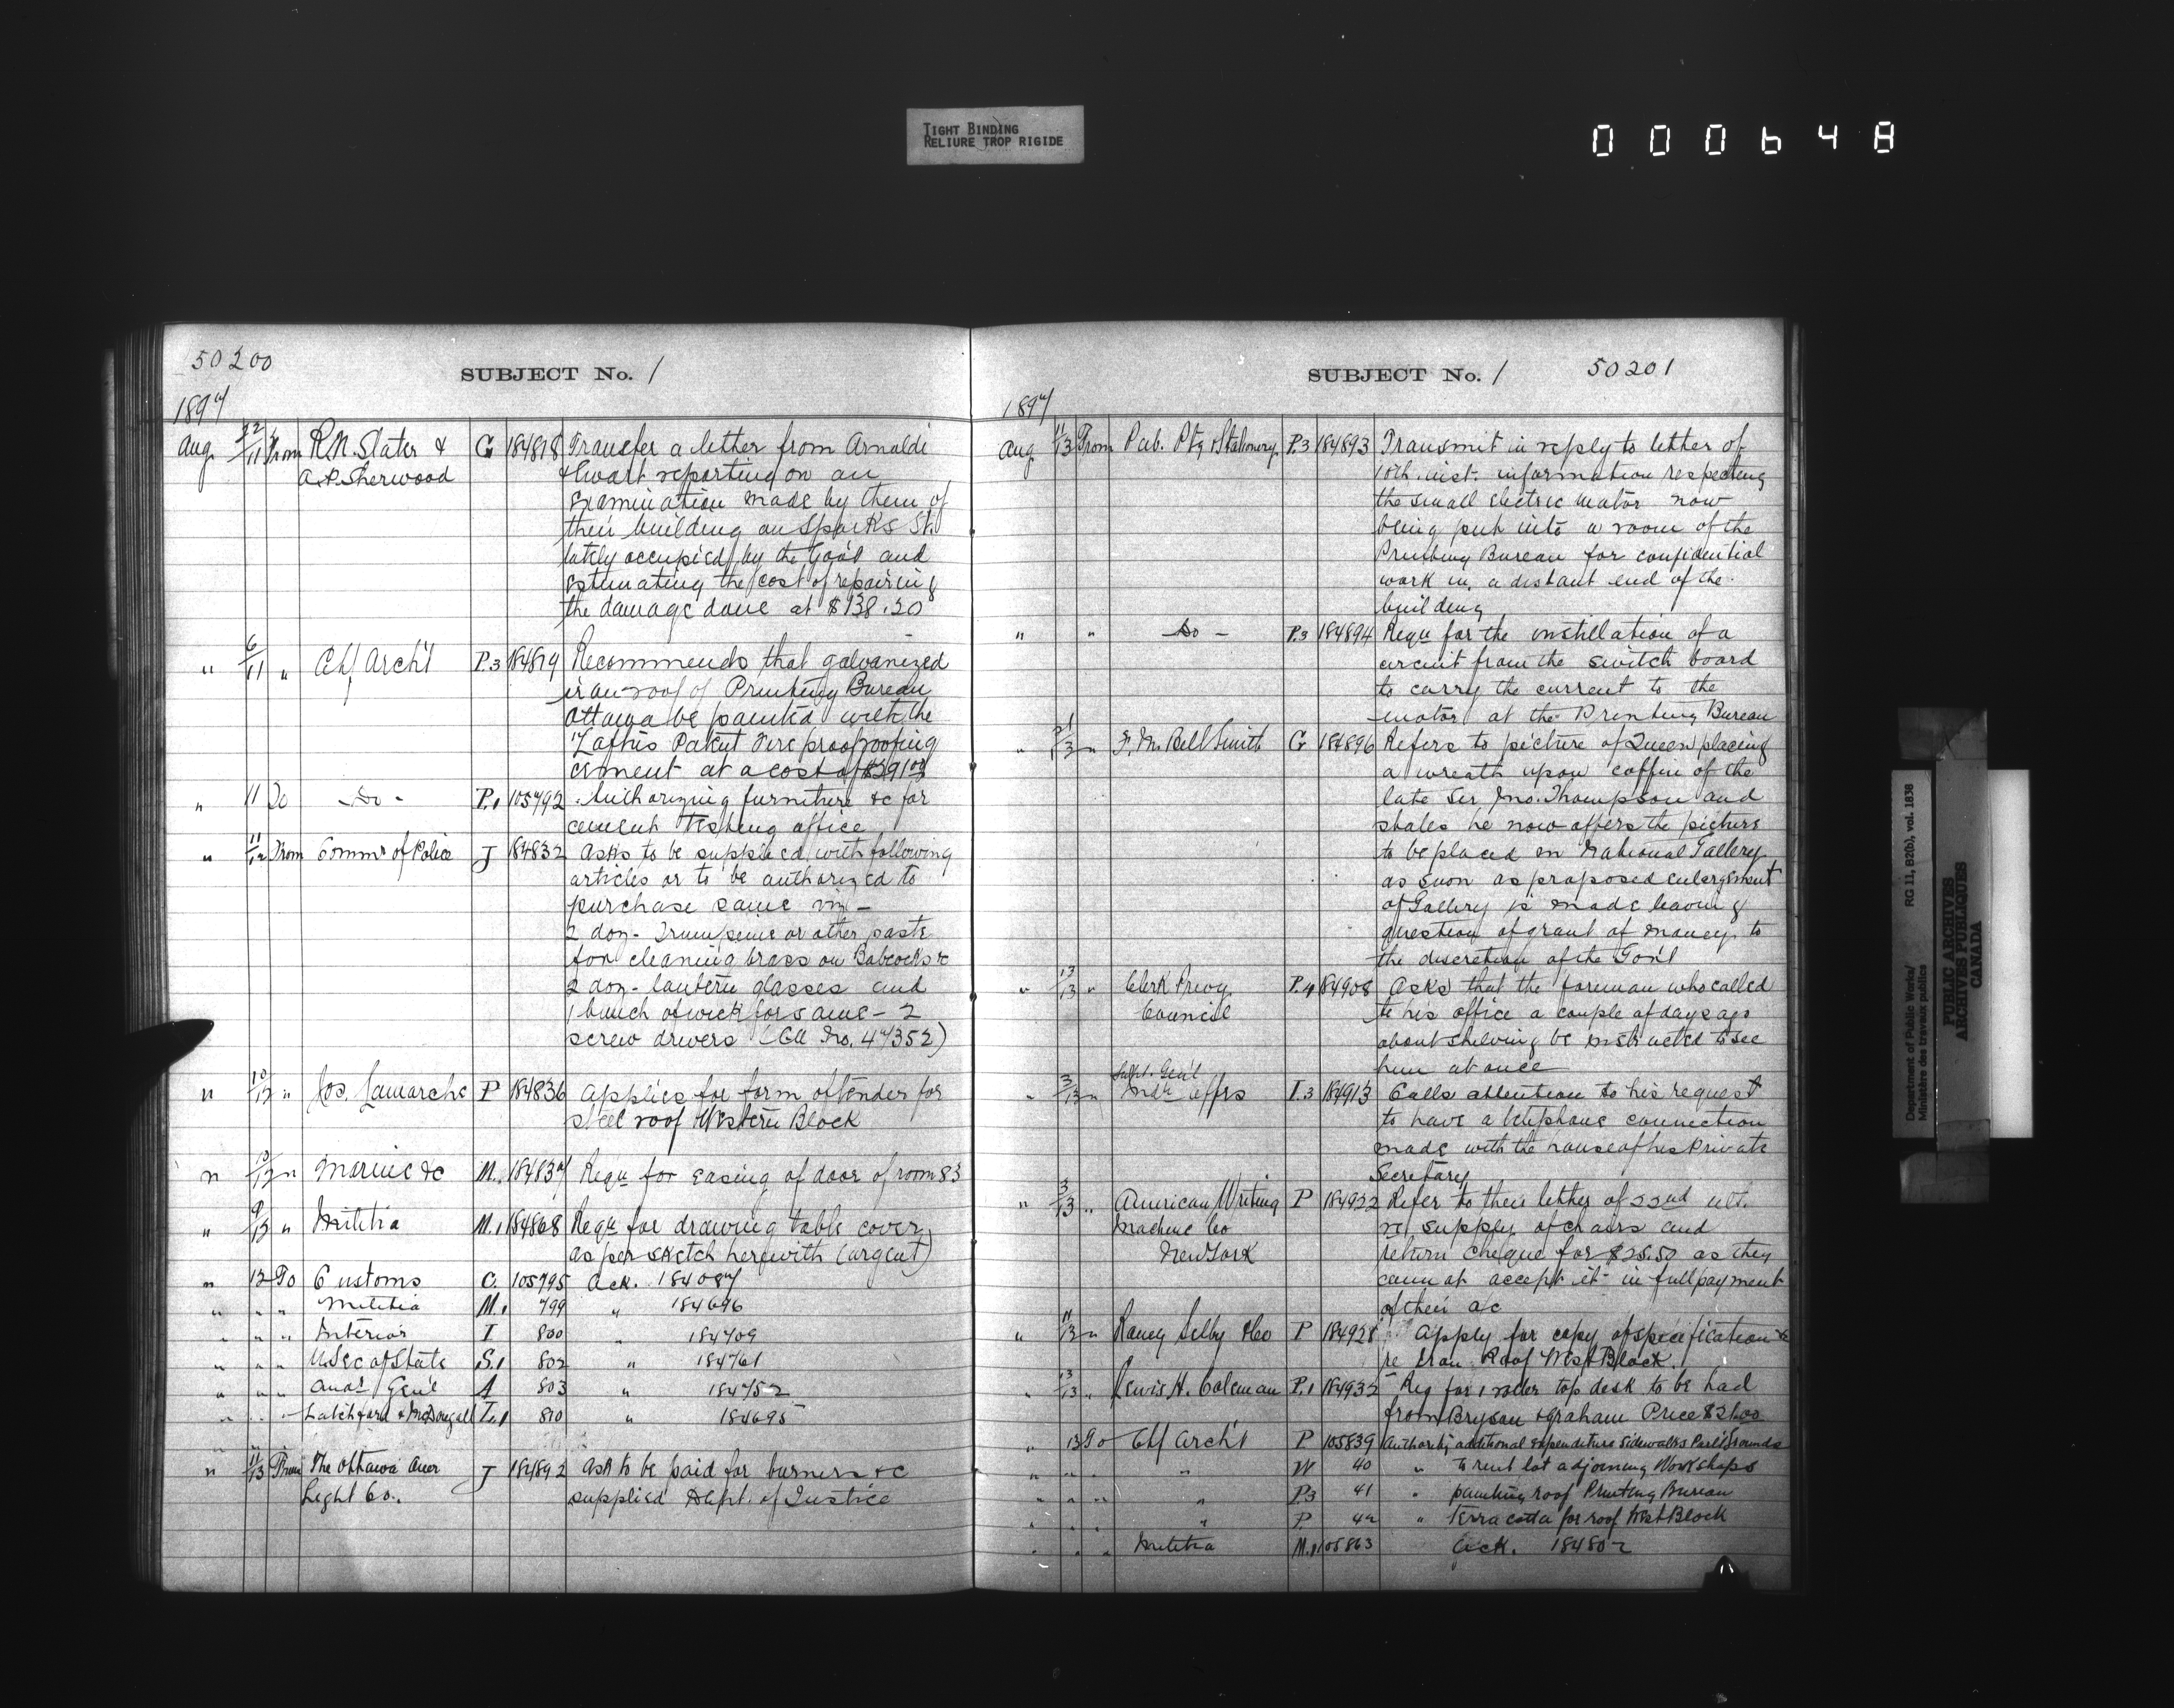 TIGHT BINDING
RELIURE TROP RIGIDE
000648
50200
SUBJECT No. 1
1897
Aug. 22/11 From R.N. Slater & G 184818 Transfer a letter from Arnaldi
A.P. Sherwood & Ewart reporting on an
examination made by them of
their building on Sparks St.
lately occupied by the Gov't and
estimating the cost of repairing
the damage done at $138.20
" 6/11 " Chf Arch't P.3 184819 Recommends that galvanized
iron roof of Printing Bureau
Ottawa be painted with the
Patent Fire proof roofing
cement at a cost of $291.00
" 11 To -Do- P.1 105792 Authorizing furniture &c for
cement testing office
" 11/12 From Commr of Police J 184832 Asks to be supplied with following
articles or to be authorized to
purchase same viz -
2 doz- or other paste
for cleaning brass on Babcocks &c
2 doz- lantern glasses and
1 bunch of wick for same - 2
screw drivers (Call No. 47352)
" 10/12 " Jos. Lamarche P 184836 Applies for form of tender for
steel roof Western Block
" 10/12 " Marine &c M. 184837 Reqn for easing of door of room 83
" 9/13 " Militia M.1 184868 Reqn for drawing table cover
as per sketch herewith (urgent)
" 12 To Customs C. 105795 Ack. 184087
" " " Militia M.1 799 " 184696
" " " Interior I 800 " 184709
" " " U. Sec of State S.1 802 " 184761
" " " Audr Gen'l A 803 " 184752
" " " Latchford & McDougall L.1 810 " 184695
" 11/13 From The Ottawa Auer J 184892 Ask to be paid for burners &c
Light Co.. supplied Dept. of Justice
SUBJECT No. 1 50201
1897
Aug 11/13 From Pub. Ptg & Stationery P.3 184893 Transmit in reply to letter of
10th inst. information respecting
the small electric motor now
being put into a room of the
Printing Bureau for confidential
work in a distant end of the
building
" " -Do- P.3 184894 Reqn for the instillation of a
circuit from the switch board
to carry the current to the
motor at the Printing Bureau
" " F. M. Bell Smith G 184896 Refers to picture of Queen placing
a wreath upon coffin of the
late Sir Jno. Thompson and
states he now offers the picture
to be placed in National Gallery
as soon as proposed enlargement
of Gallery is made leaving
question of grant of money to
the discretion of the Gov't
" 13/13 " Clerk Privy P.4 184908 Asks that the foreman who called
Council to his office a couple of days ago
about shelving be instructed to see
him at once
" 3/13 " Supt. Gen'l
Indn Affrs I.3 184913 Calls attention to his request
to have a telephone connection
made with the house of his Private
Secretary
" 3/13 " American Writing P 184922 Refer to their letter of 22nd ult.
Machine Co re supply of chairs and
New York return cheque for $25.50 as they
cannot accept it in full payment
of their a/c
" 11/13 " Raney Selby & Co P 184928 Apply for copy of specification &c
re Iron Roof West Block.
" 13/13 " Lewis H. Coleman P.1 184932 Req for 1 roller top desk to be had
from Bryson & Graham Price $21.00
" 13 To Chf Arch't P 105839 Authority additional expenditure Sidewalks Parlt Grounds
" " " " W 40 " To rent lot adjoining Workshops
" " " " P3 41 " painting roof Printing Bureau
" " " " P. 42 " Terra cotta for roof West Block
" " " Militia M.1 105863 Ack. 184802
Department of Public Works/ RG 11, B2(b), vol. 1838
Ministère des travaux publics
PUBLIC ARCHIVES
ARCHIVES PUBLIQUES
CANADA